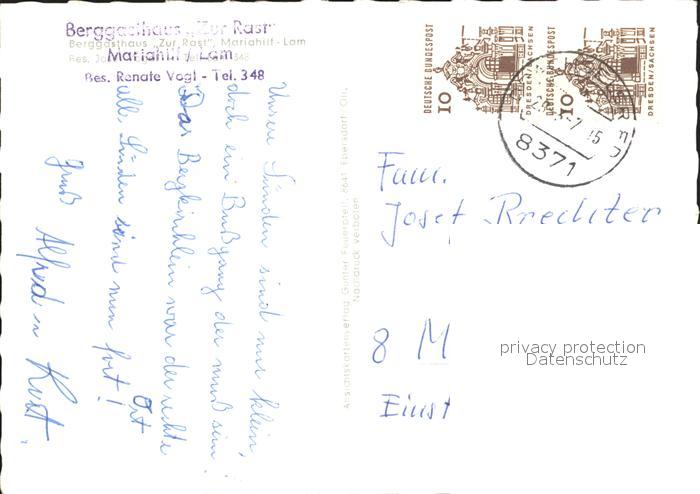 Berggasthaus „Zur Rast"
Mariahilf / Lam
Bes. Renate Vogl - Tel. 348
Berggasthaus „Zur Rast", Mariahilf - Lam
Unsere Sünden sind nur klein,
doch ein Bußgang der muß sein!
Das Bergkirchlein war der rechte
Ort
alle Sünden sind nun fort!
Gruß Alfred u. Kurt.
Ansichtskartenverlag Gunter Feuerpfeil, 8641 Ebersdorf Ofr.
Nachdruck verboten
DEUTSCHE BUNDESPOST
10
DRESDEN/SACHSEN
DEUTSCHE BUNDESPOST
10
DRESDEN/SACHSEN
8371
Fam.
Josef
8 M
privacy protection
Datenschutz